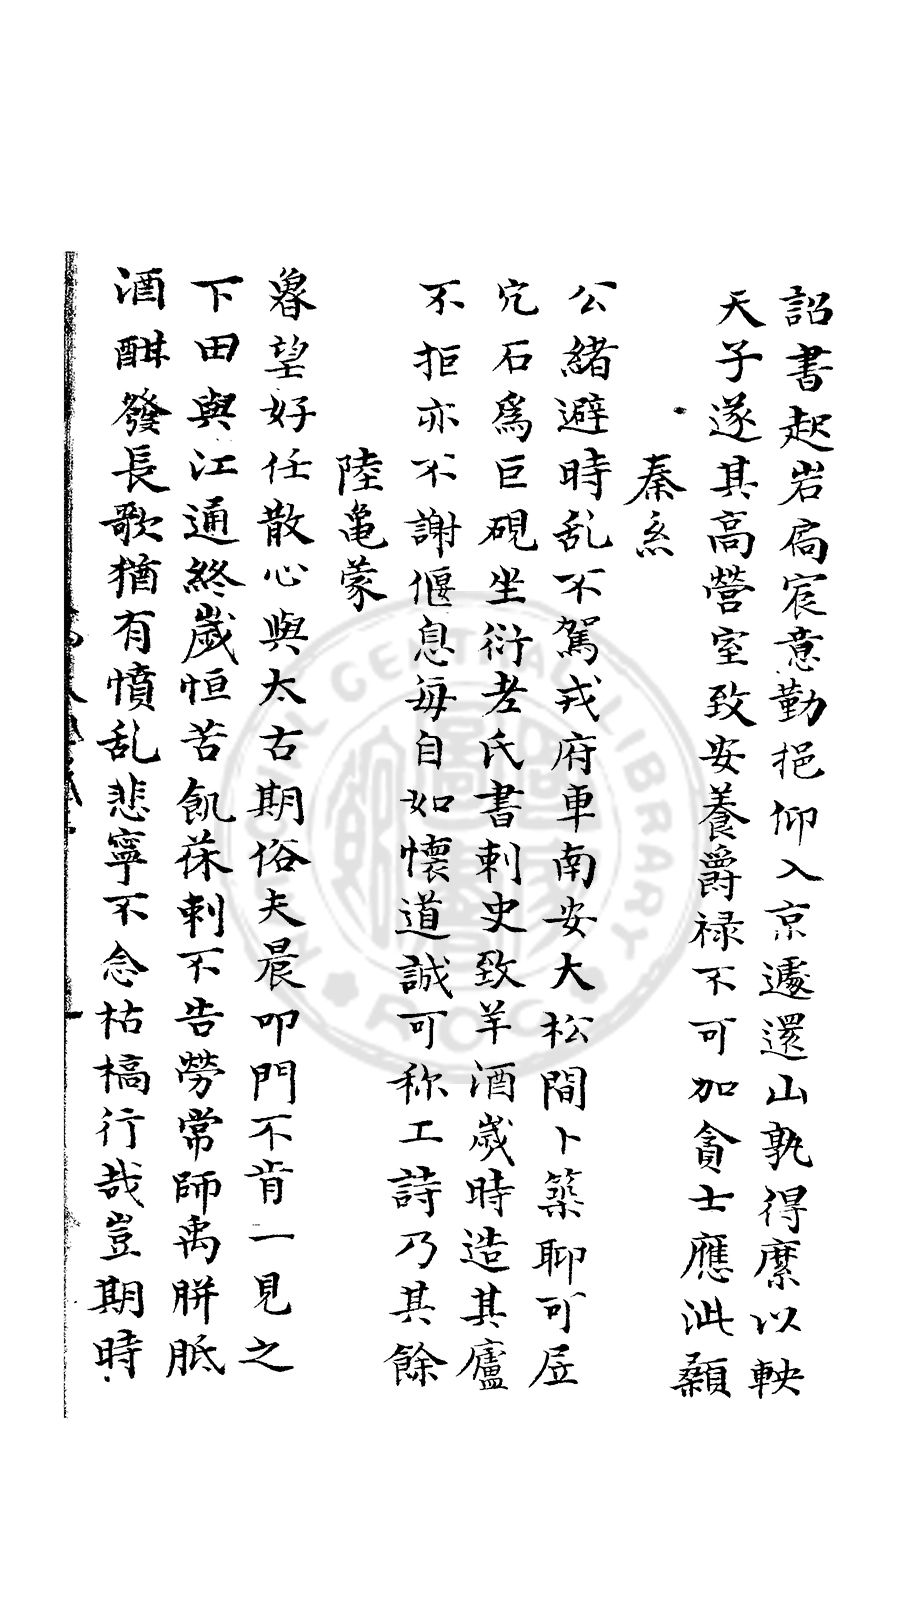 詔書起岩扄宸意勤挹仰入京遽還山孰得縻以軮
天子遂其高營室致安養爵禄不可加貪士應泚顙
秦系
公緒避時乱不駕戎府車南安大松間卜築聊可居
穴石爲巨硯坐衍老氏書刺史致羊酒歲時造其廬
不拒亦不謝偃息每自如懷道誠可称工詩乃其餘
陸亀蒙
魯望好任散心與太古期俗夫晨叩門不肯一見之
下田與江通終歲恒苦飢茠刺不告勞常師禹胼胝
酒酣發長歌猶有憤乱悲寧不念枯槁行哉豈期時
NATIONAL CENTRAL LIBRARY R.O.C.